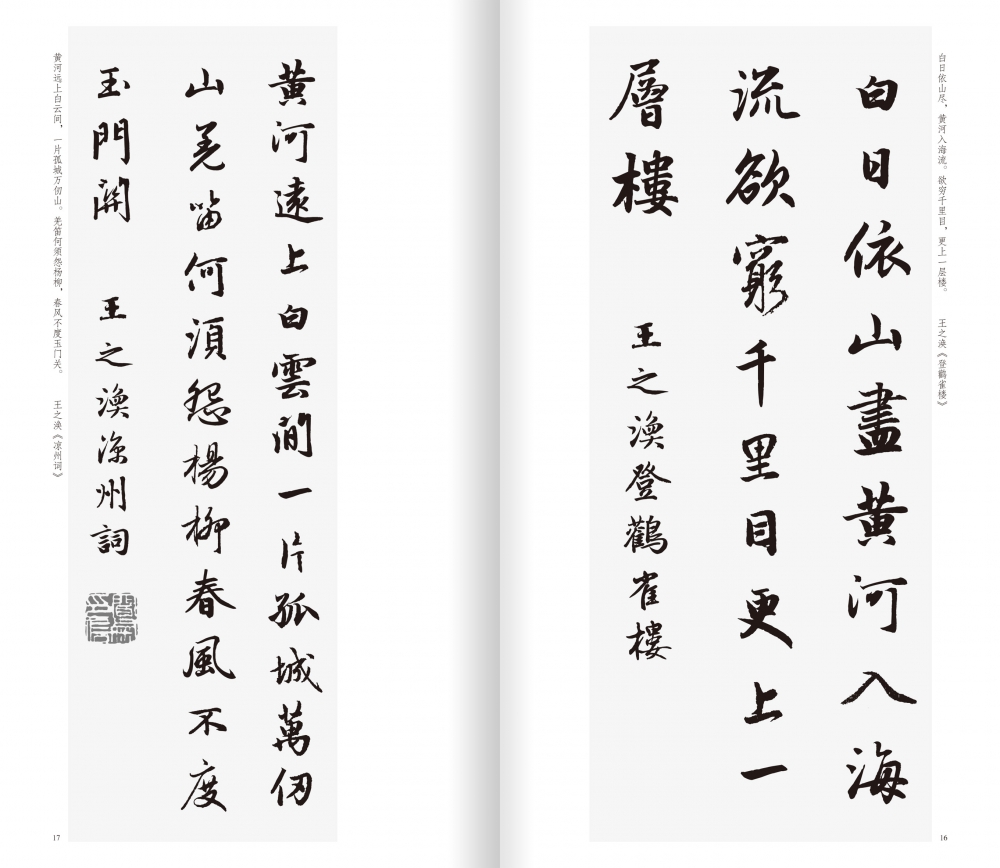 白日依山尽，黄河入海流。欲穷千里目，更上一层楼。 王之涣《登鹳雀楼》
白日依山盡黄河入海
流欲窮千里目更上一
層樓 王之渙登鸛雀樓
16
黄河遠上白雲間一片孤城萬仞
山羌笛何須怨楊柳春風不度
玉門關 王之渙涼州詞
黄河远上白云间，一片孤城万仞山。羌笛何须怨杨柳，春风不度玉门关。 王之涣《凉州词》
17